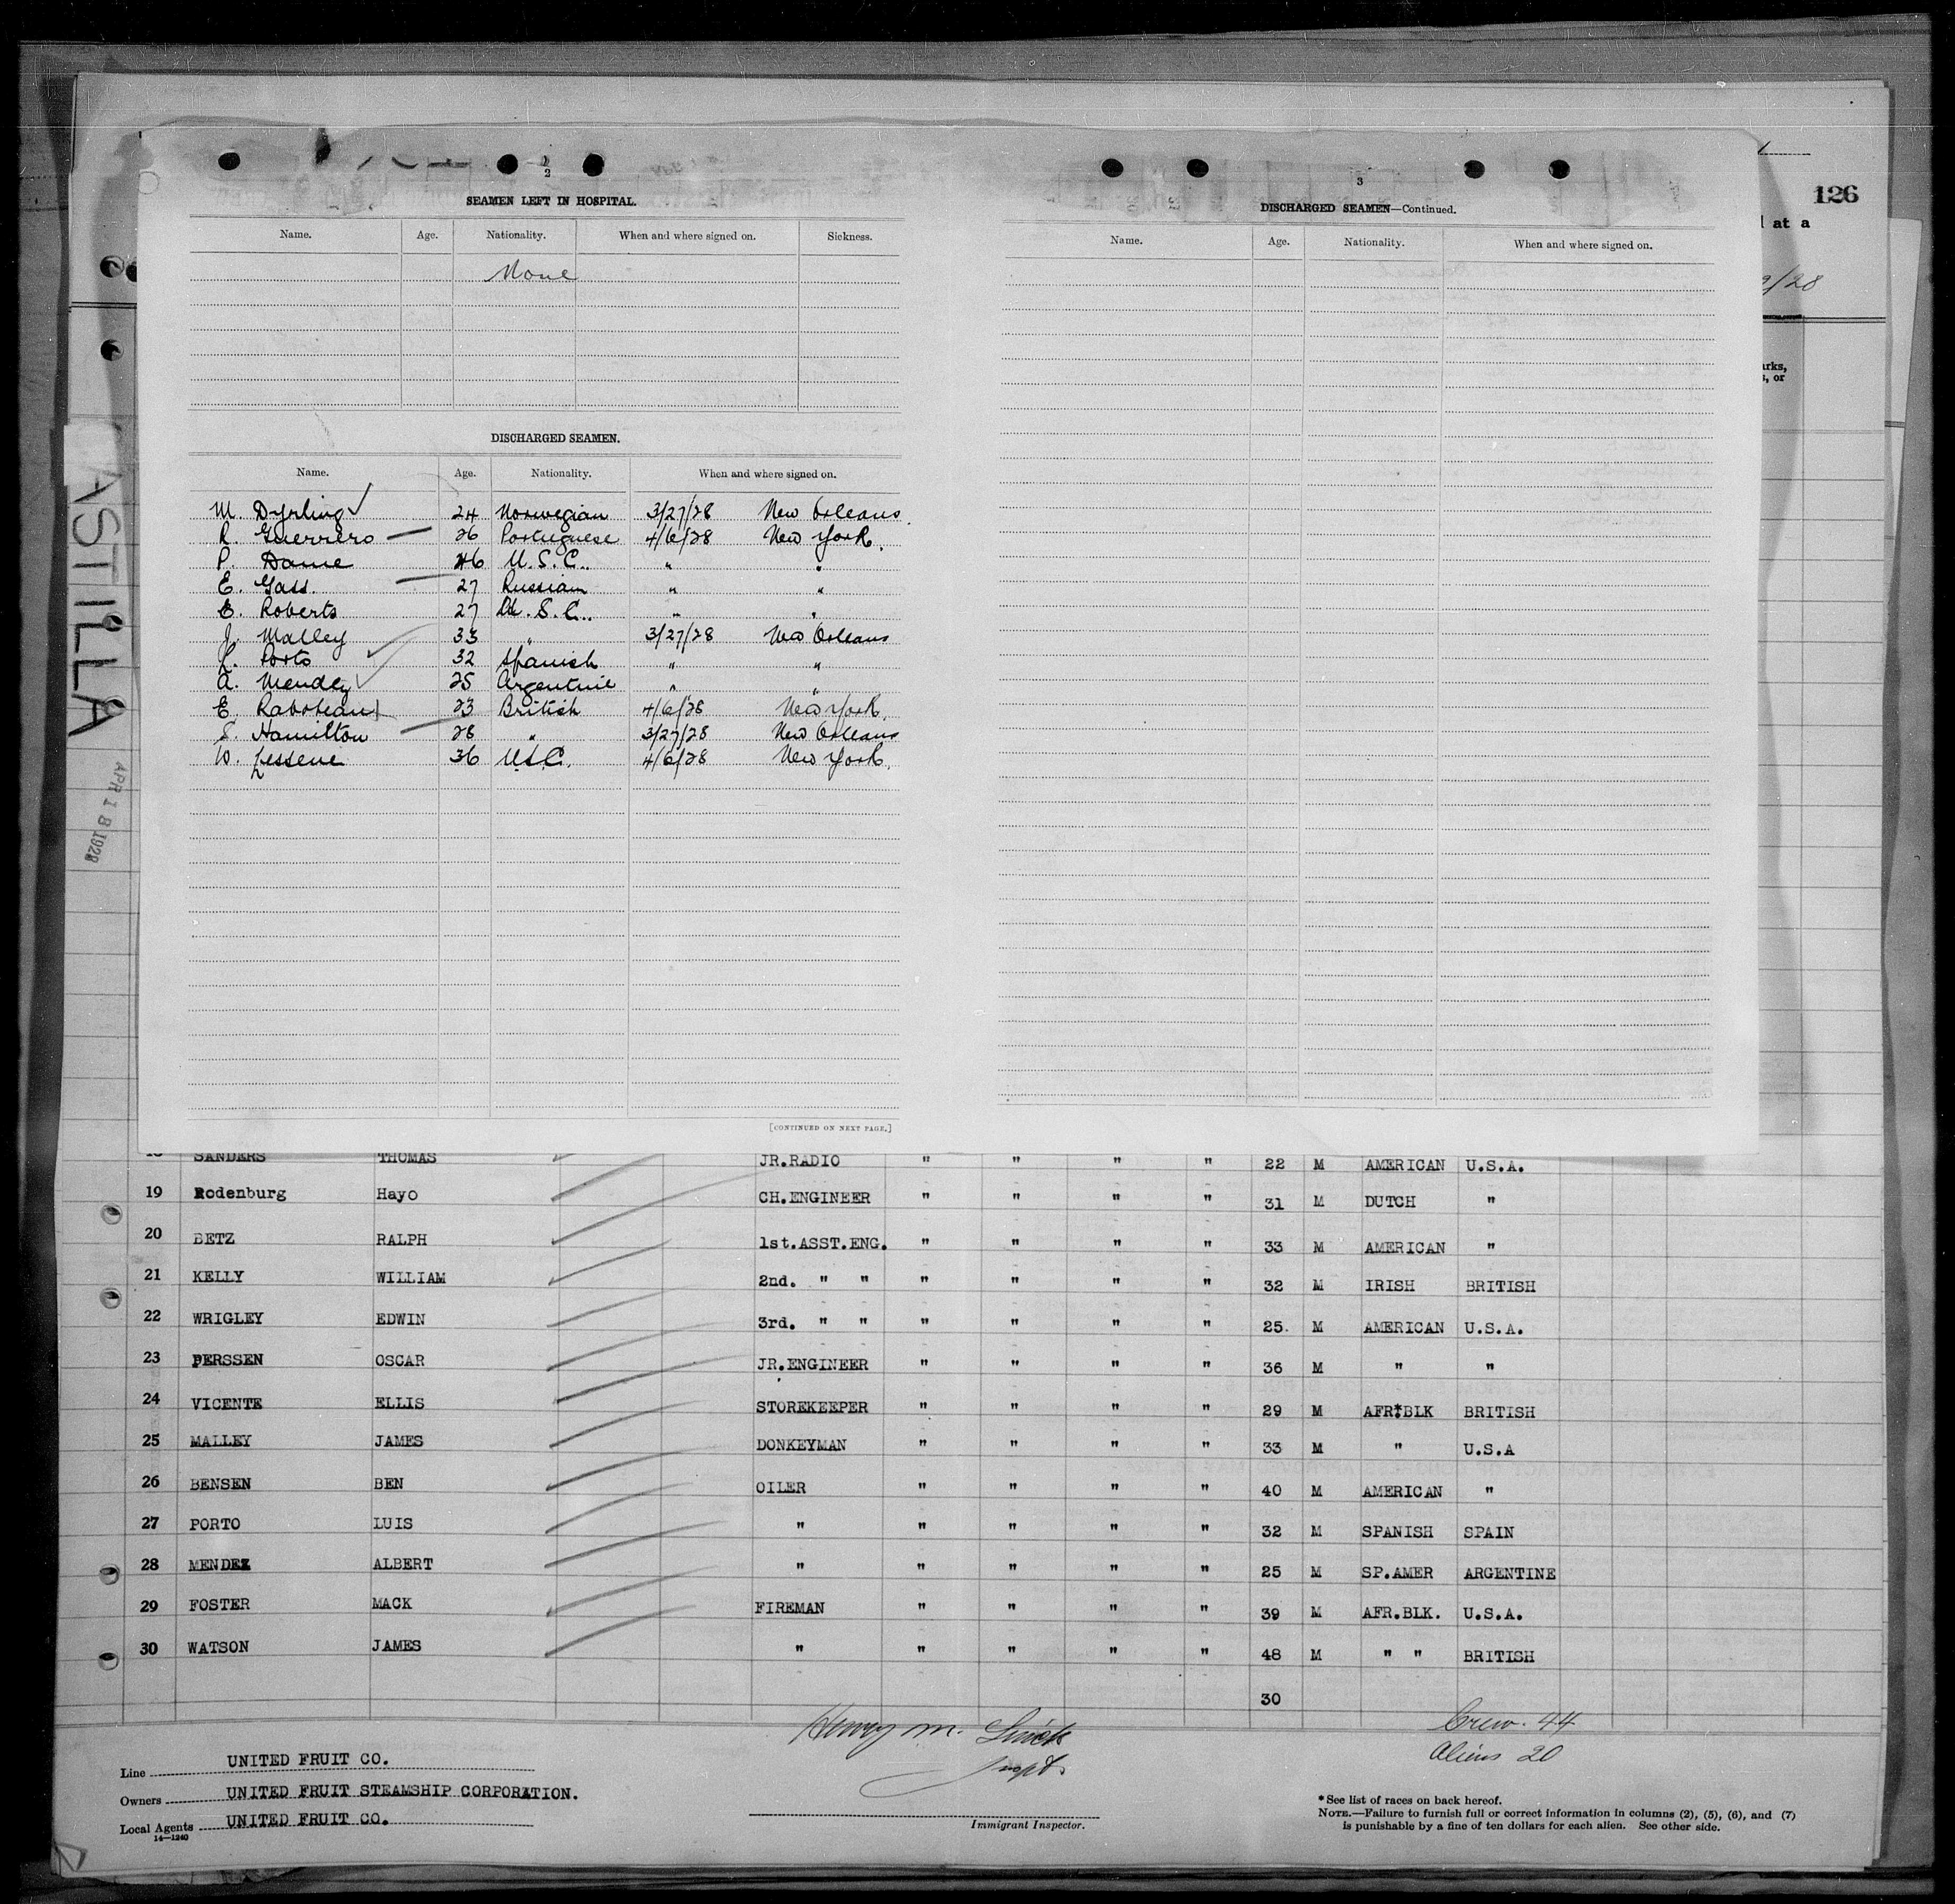 126
l at a
9/28
rks,
s, or
ASTILLA
APR 18 1928
2
SEAMEN LEFT IN HOSPITAL.
Name. Age. Nationality. When and where signed on. Sickness.
None
DISCHARGED SEAMEN.
Name. Age. Nationality. When and where signed on.
M. Dyrling 24 Norwegian 3/27/28 New Orleans.
R. Guerrero 26 Portuguese 4/6/28 New York.
P. Dame 46 U.S.C. " "
E. Gass. 27 Russian " "
E. Roberts 27 U.S.C. " "
J. Malley 33 " 3/27/28 New Orleans
L. Porto 32 Spanish " "
A. Mendez 25 Argentine " "
E. Raboteau 23 British 4/6/28 New York.
S. Hamilton 28 " 3/27/28 New Orleans
W. Lessene 36 U.S.C. 4/6/28 New York.
[CONTINUED ON NEXT PAGE.]
3
DISCHARGED SEAMEN—Continued.
Name. Age. Nationality. When and where signed on.
18 SANDERS THOMAS JR.RADIO " " " " 22 M AMERICAN U.S.A.
19 Rodenburg Hayo CH.ENGINEER " " " " 31 M DUTCH "
20 BETZ RALPH 1st.ASST.ENG. " " " " 33 M AMERICAN "
21 KELLY WILLIAM 2nd. " " " " " " 32 M IRISH BRITISH
22 WRIGLEY EDWIN 3rd. " " " " " " 25. M AMERICAN U.S.A.
23 PERSSEN OSCAR JR.ENGINEER " " " " 36 M " "
24 VICENTE ELLIS STOREKEEPER " " " " 29 M AFR.BLK BRITISH
25 MALLEY JAMES DONKEYMAN " " " " 33 M " U.S.A
26 BENSEN BEN OILER " " " " 40 M AMERICAN "
27 PORTO LUIS " " " " " 32 M SPANISH SPAIN
28 MENDEZ ALBERT " " " " " 25 M SP.AMER ARGENTINE
29 FOSTER MACK FIREMAN " " " " 39 M AFR.BLK. U.S.A.
30 WATSON JAMES " " " " " 48 M " " BRITISH
30
Henry M. Smith
Inspt.
Crew. 44
Aliens 20
Line UNITED FRUIT CO.
Owners UNITED FRUIT STEAMSHIP CORPORATION.
Local Agents UNITED FRUIT CO.
14—1240
Immigrant Inspector.
*See list of races on back hereof.
NOTE.—Failure to furnish full or correct information in columns (2), (5), (6), and (7)
is punishable by a fine of ten dollars for each alien. See other side.